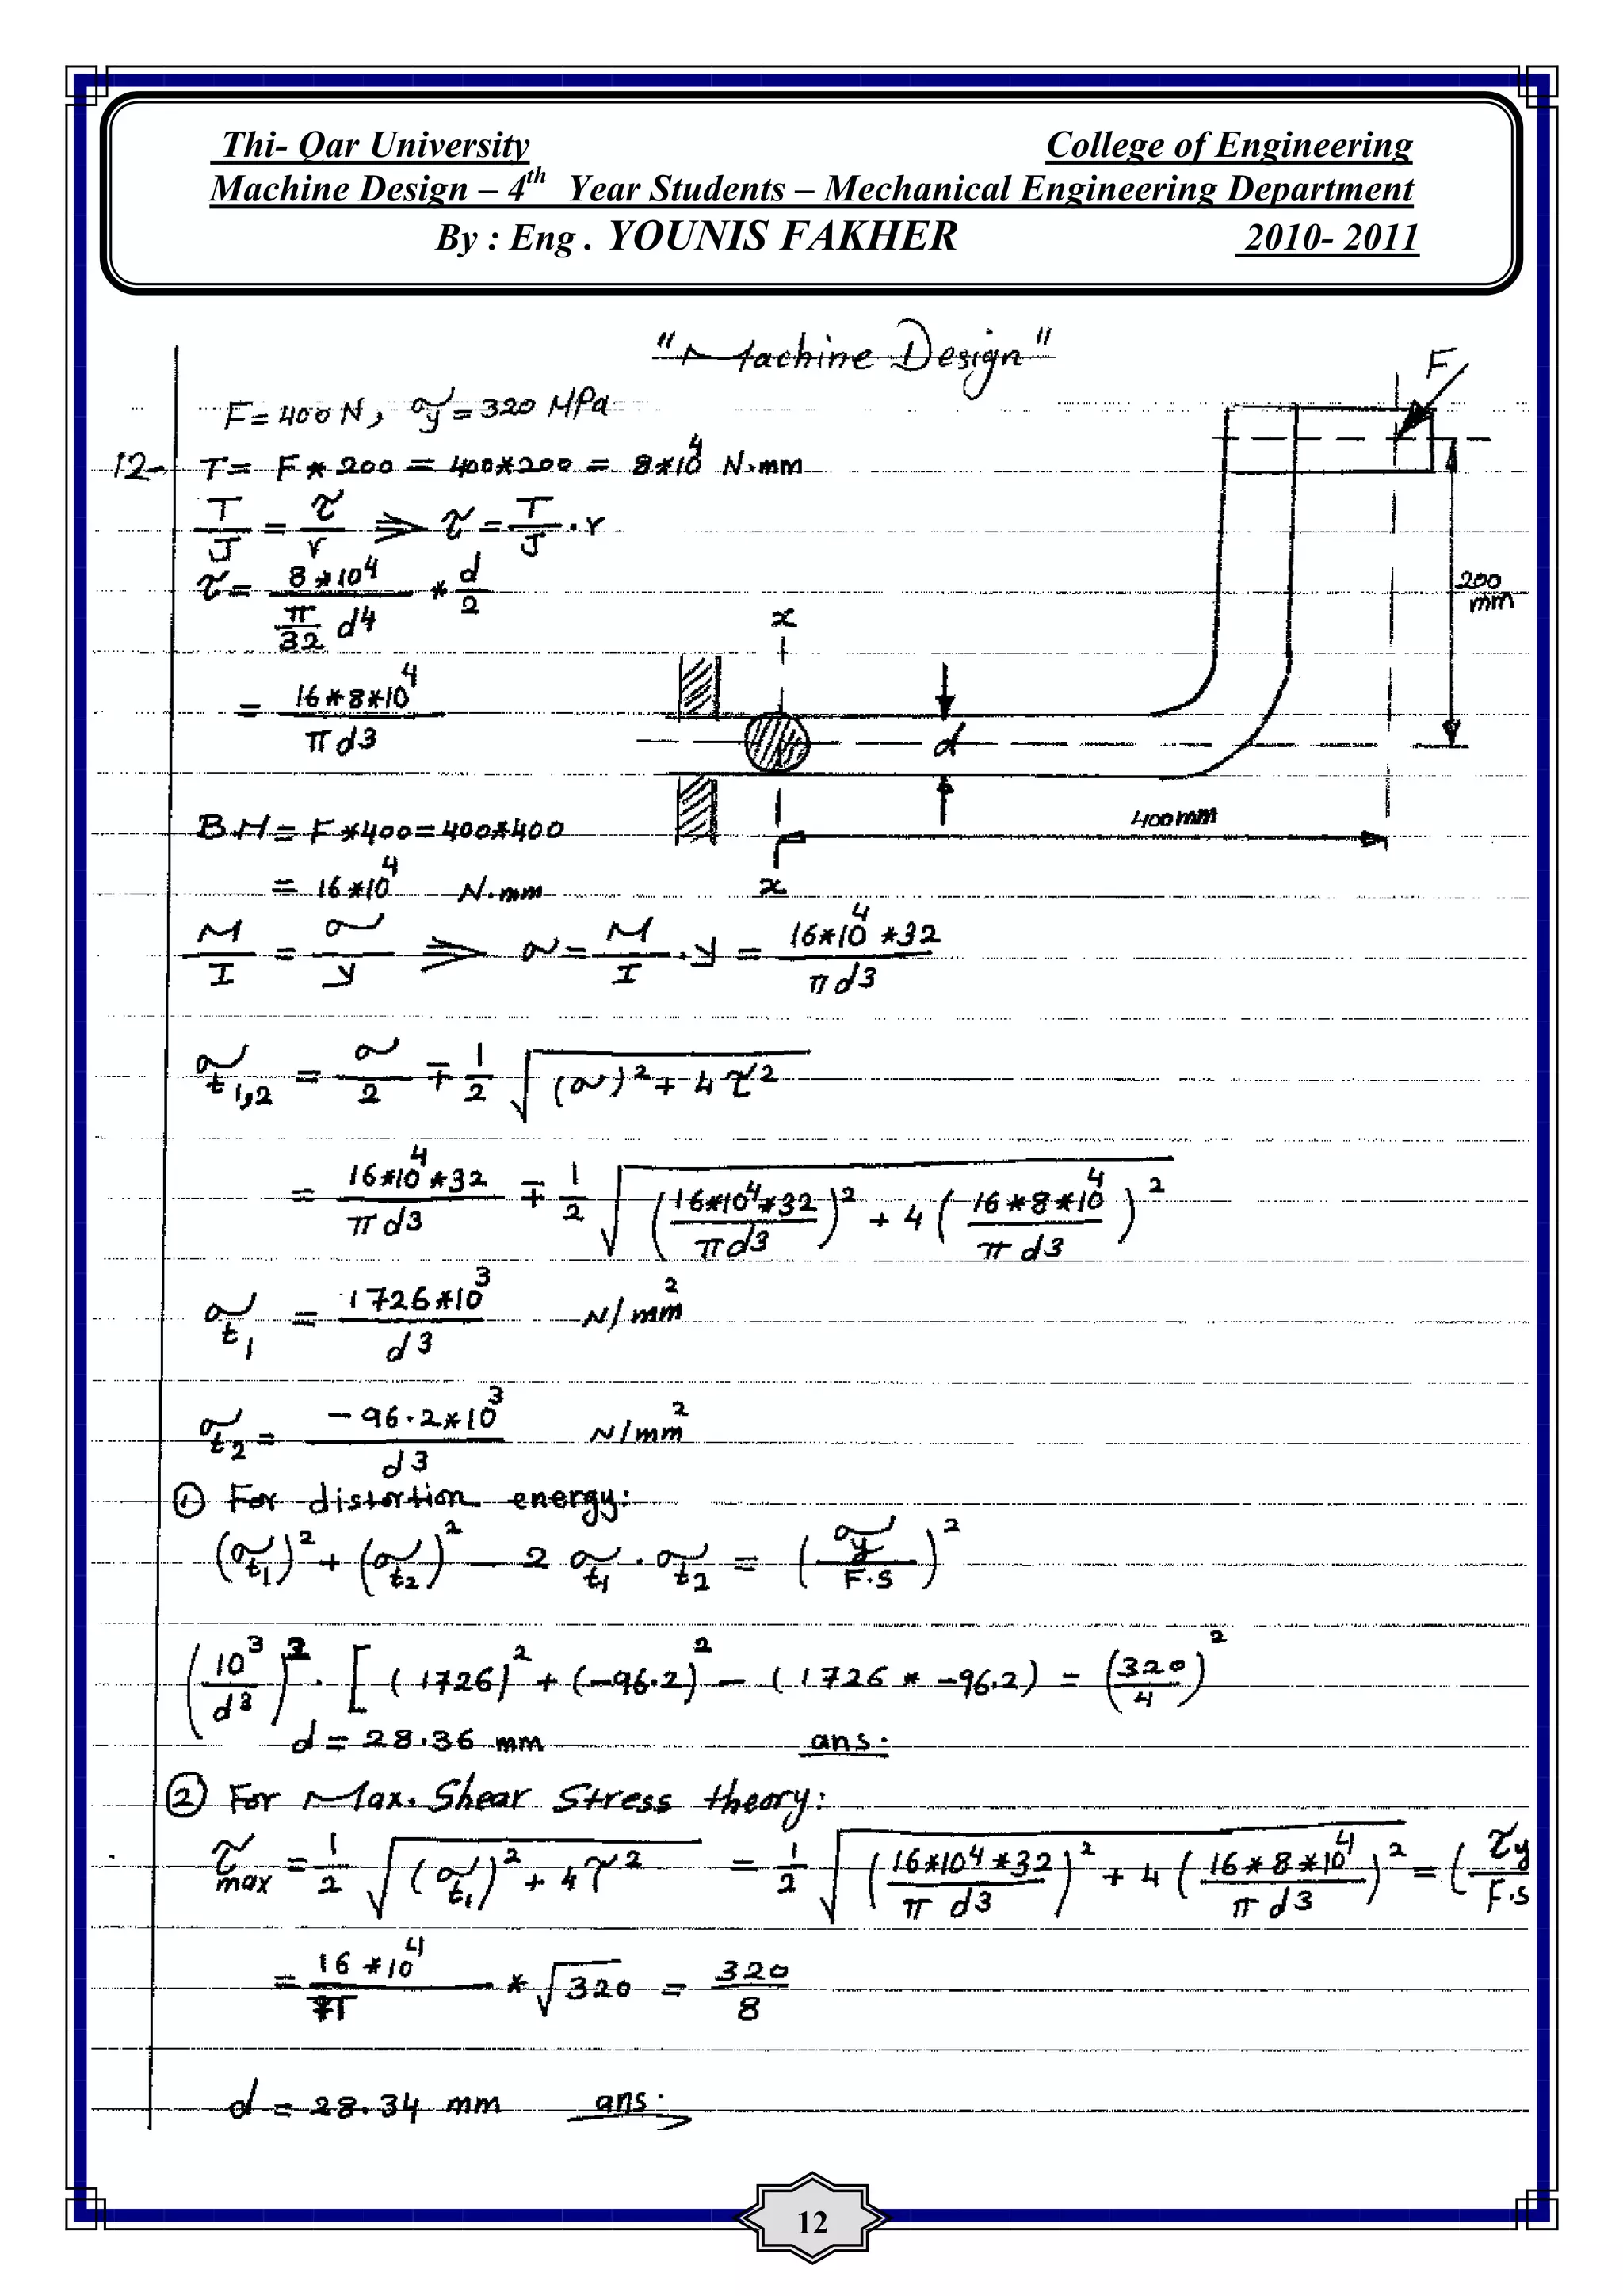 Thi- Qar University College of Engineering
Machine Design – 4th Year Students – Mechanical Engineering Department
By : Eng . YOUNIS FAKHER 2010- 2011
"Machine Design"
F
F = 400 N, σy = 320 MPa
12- T = F * 200 = 400*200 = 8*10^4 N.mm
T/J = τ/r ⇒ τ = T/J . r
τ = 8*10^4 / (π/32 d4) * d/2
200 mm
x
= 16*8*10^4 / π d3
d
B.M = F*400 = 400*400
400 mm
= 16*10^4 N.mm
x
M/I = σ/y ⇒ σ = M/I . y = 16*10^4 *32 / π d3
σt1,2 = σ/2 ∓ 1/2 √((σ)^2 + 4 τ^2)
= 16*10^4*32 / π d3 ∓ 1/2 √((16*10^4*32 / π d3)^2 + 4 (16*8*10^4 / π d3)^2)
σt1 = 1726*10^3 / d3 N/mm^2
σt2 = -96.2*10^3 / d3 N/mm^2
① For distortion energy:
(σt1)^2 + (σt2)^2 - 2 σt1 . σt2 = (σy / F.S)^2
(10^3 / d3)^2 . [ (1726)^2 + (-96.2)^2 - (1726 * -96.2) = (320/4)^2
d = 28.36 mm ans.
② For Max. Shear Stress theory:
τmax = 1/2 √((σt1)^2 + 4τ^2) = 1/2 √((16*10^4*32 / π d3)^2 + 4 (16*8*10^4 / π d3)^2) = (τy / F.S
= 16*10^4 / π * √320 = 320/8
d = 28.34 mm ans.
12